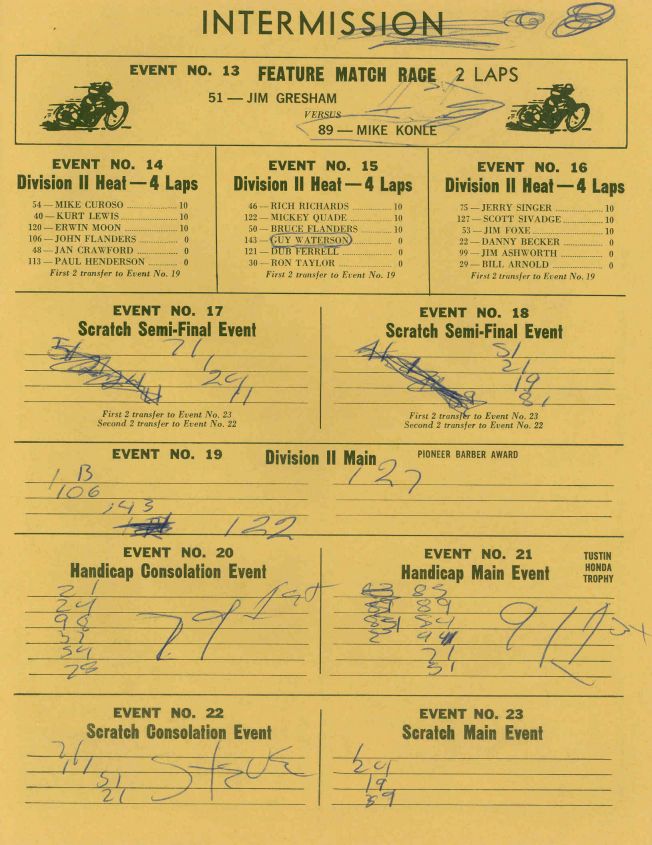 INTERMISSION
EVENT NO. 13 FEATURE MATCH RACE 2 LAPS
51 — JIM GRESHAM
VERSUS
89 — MIKE KONLE
EVENT NO. 14
Division II Heat — 4 Laps
54 — MIKE CUROSO 10
40 — KURT LEWIS 10
120 — ERWIN MOON 10
106 — JOHN FLANDERS 0
48 — JAN CRAWFORD 0
113 — PAUL HENDERSON 0
First 2 transfer to Event No. 19
EVENT NO. 15
Division II Heat — 4 Laps
46 — RICH RICHARDS 10
122 — MICKEY QUADE 10
50 — BRUCE FLANDERS 10
143 — GUY WATERSON 0
121 — DUB FERRELL 0
30 — RON TAYLOR 0
First 2 transfer to Event No. 19
EVENT NO. 16
Division II Heat — 4 Laps
75 — JERRY SINGER 10
127 — SCOTT SIVADGE 10
53 — JIM FOXE 10
22 — DANNY BECKER 0
99 — JIM ASHWORTH 0
29 — BILL ARNOLD 0
First 2 transfer to Event No. 19
EVENT NO. 17
Scratch Semi-Final Event
71
First 2 transfer to Event No. 23
Second 2 transfer to Event No. 22
EVENT NO. 18
Scratch Semi-Final Event
51
21
19
81
First 2 transfer to Event No. 23
Second 2 transfer to Event No. 22
EVENT NO. 19 Division II Main PIONEER BARBER AWARD
127
106
143
122
EVENT NO. 20
Handicap Consolation Event
21
24
98
57
54
78
79 1st
EVENT NO. 21
Handicap Main Event
TUSTIN
HONDA
TROPHY
85
89
54
94
71
51
EVENT NO. 22
Scratch Consolation Event
51
21
EVENT NO. 23
Scratch Main Event
24
19